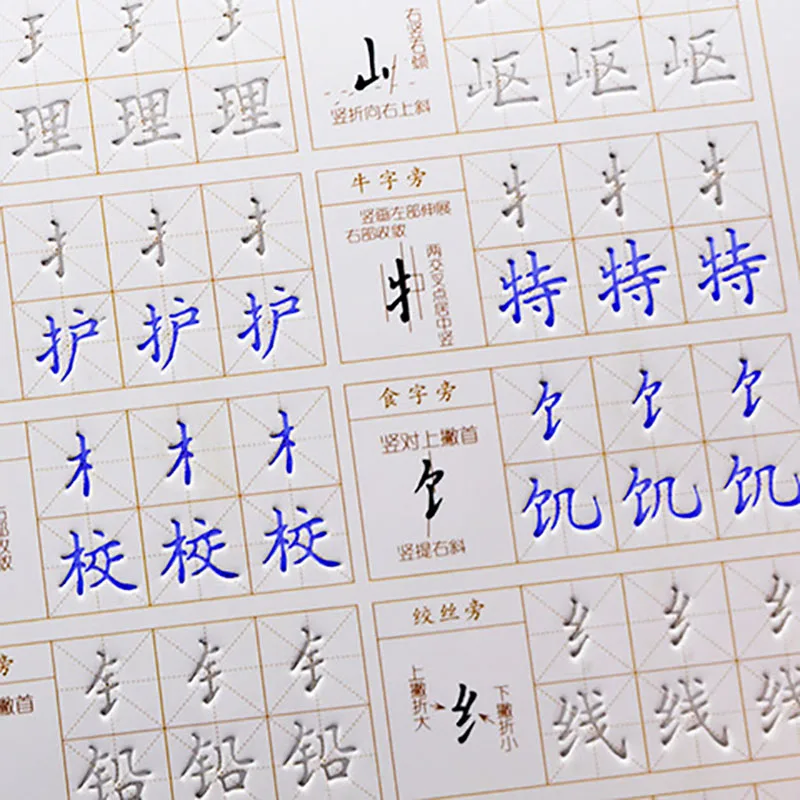 王 王 王
理 理 理
扌 扌 扌
护 护 护
右部收敛
木 木 木
校 校 校
旁
撇首
钅 钅 钅
铅 铅 铅
右竖右倾
山
竖折向右上斜
岖 岖 岖
牛字旁
竖画左部伸展
右部收敛
牜
两交叉点居中竖
牜 牜 牜
特 特 特
食字旁
竖对上撇首
饣
竖提右斜
饣 饣 饣
饥 饥 饥
绞丝旁
上撇折大
纟
下撇折小
纟 纟 纟
线 线 线